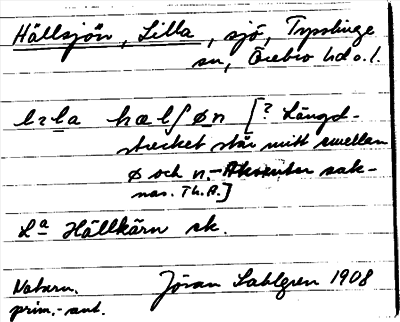 Hällsjön, Lilla, sjö, Tysslinge
sn, Örebro hd o. l.
lɩla hælʃøn [? Längd-
strecket står mitt emellan
ø och n. – Akzenter sak-
nas. Th. A.]
La Hällkärn sk.
Naturn. Jöran Sahlgren 1908
prim.-ant.